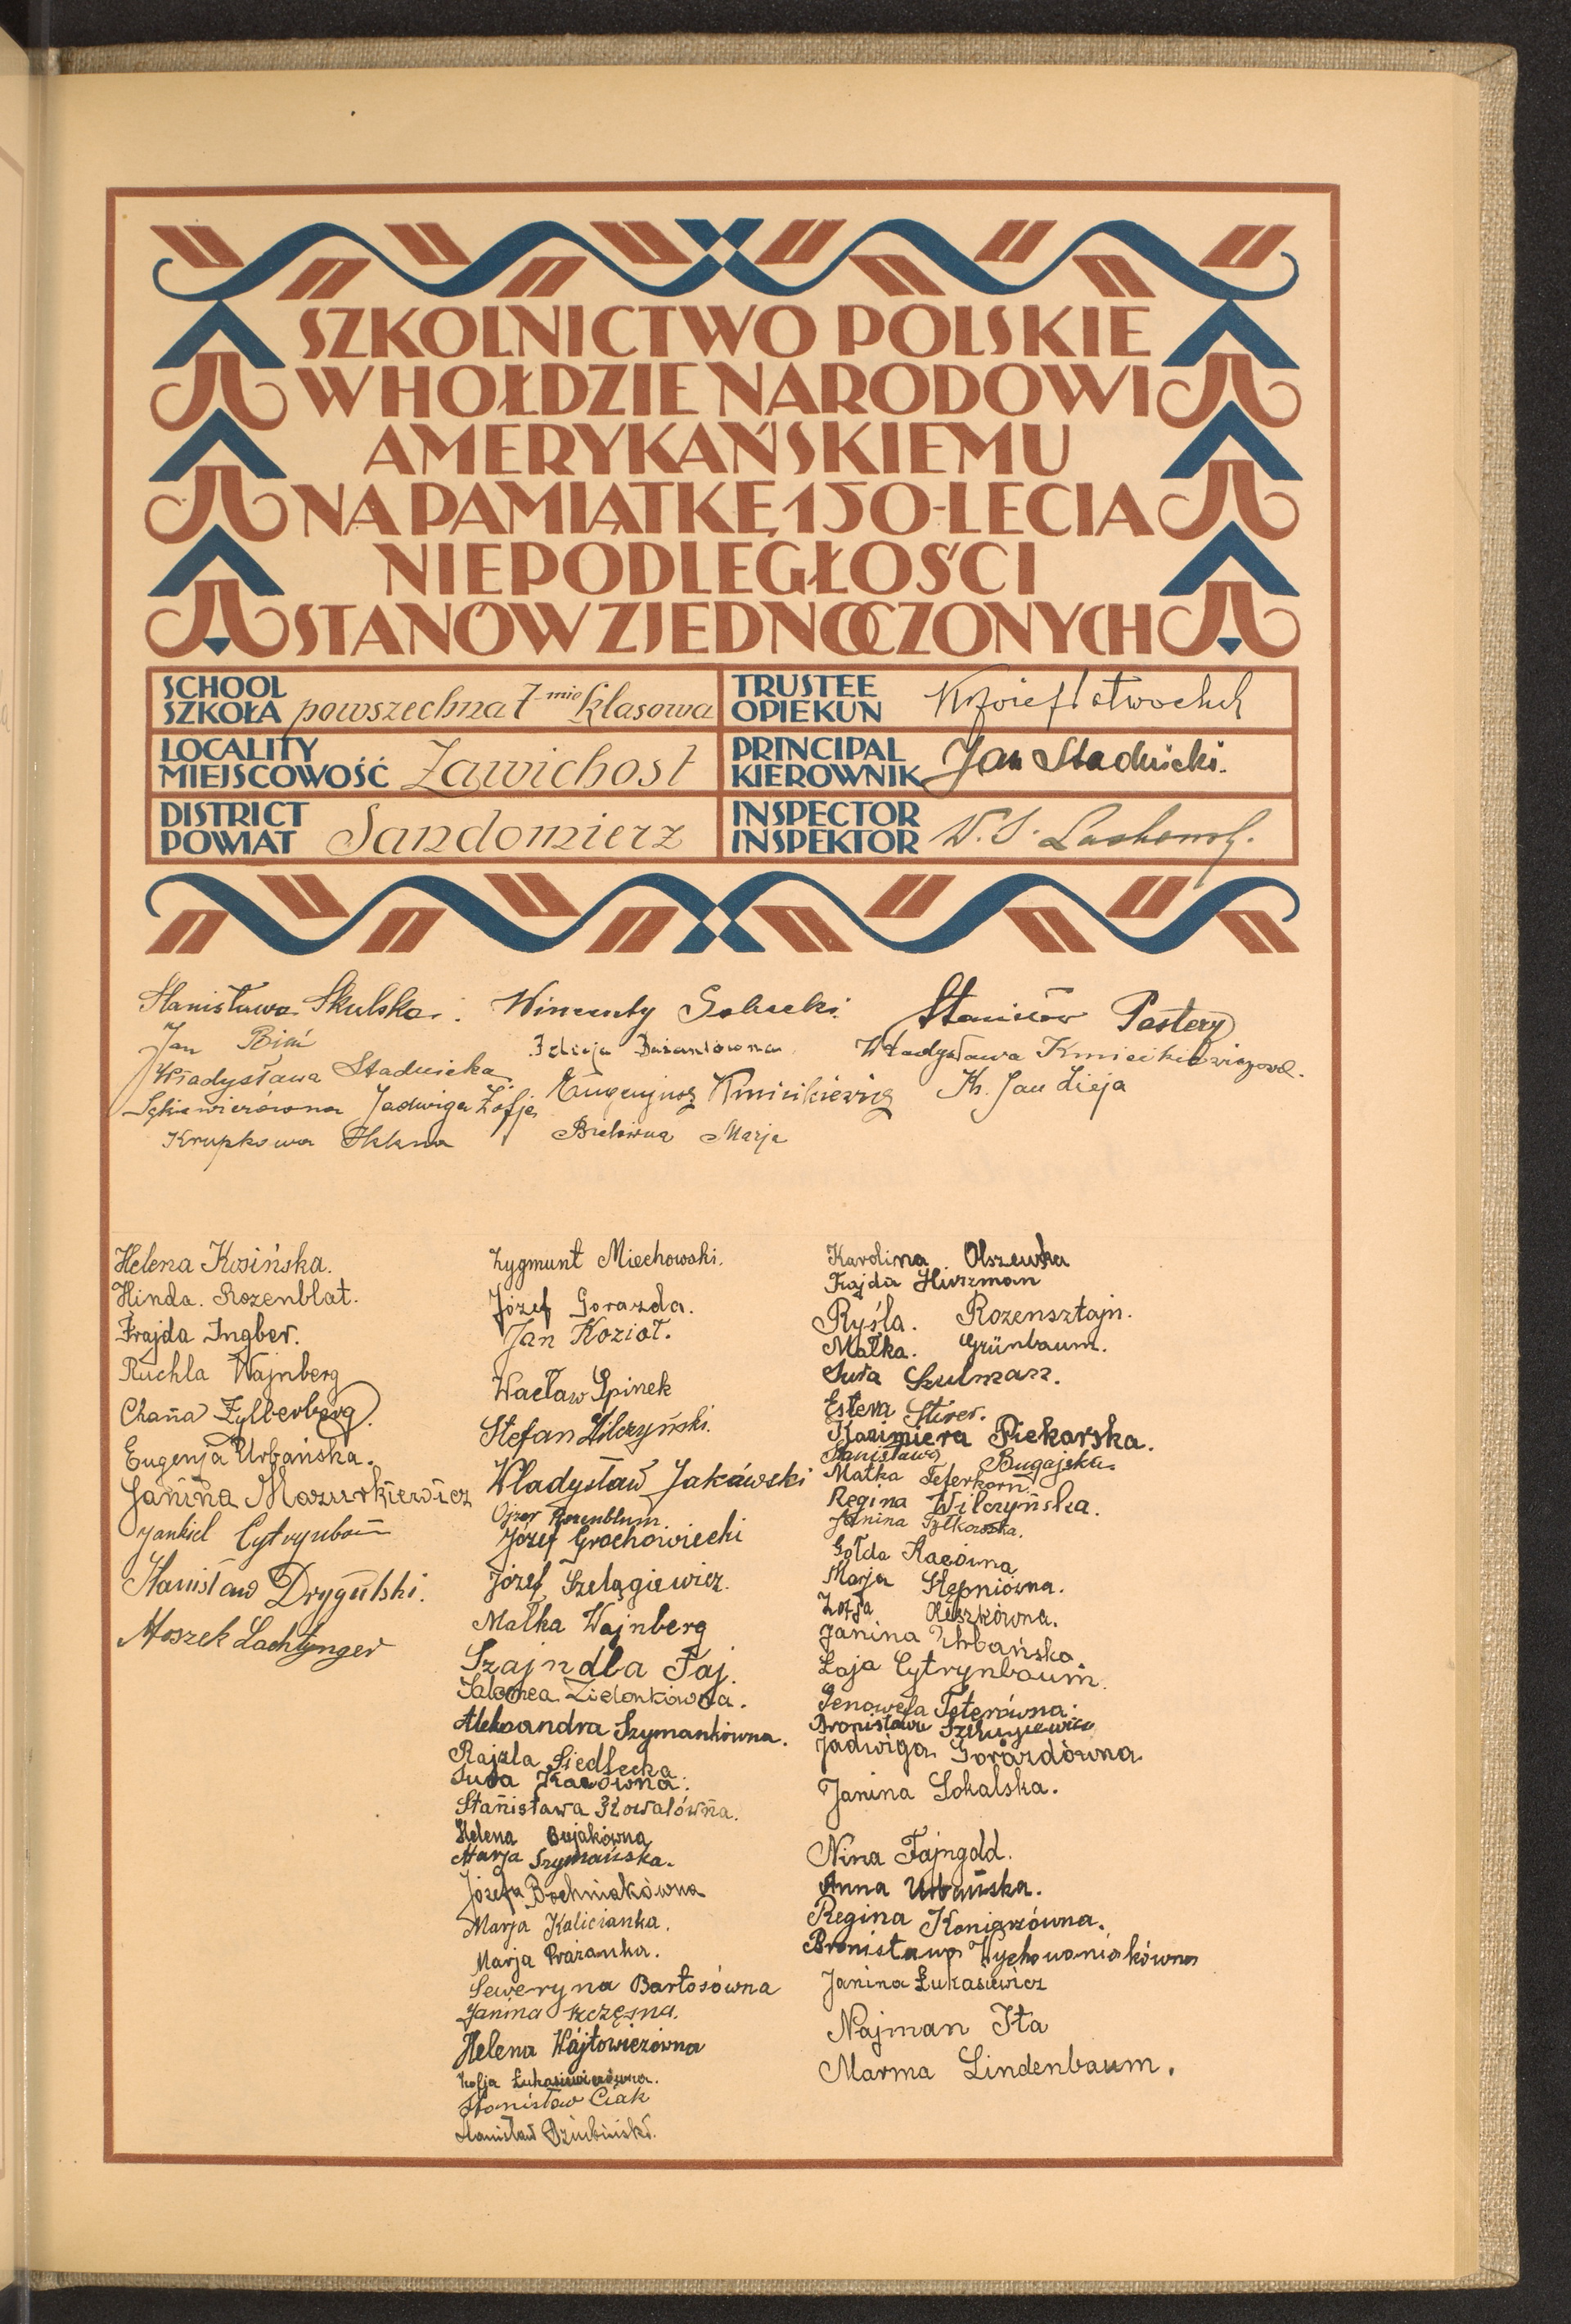 SZKOLNICTWO POLSKIE
W HOŁDZIE NARODOWI
AMERYKAŃSKIEMU
NA PAMIĄTKĘ 150-LECIA
NIEPODLEGŁOŚCI
STANÓW ZJEDNOCZONYCH
SCHOOL
SZKOŁA powszechna 7-mio klasowa
TRUSTEE
OPIEKUN
LOCALITY
MIEJSCOWOŚĆ Zawichost
PRINCIPAL
KIEROWNIK Jan Stadnicki.
DISTRICT
POWIAT Sandomierz
INSPECTOR
INSPEKTOR W. S.
Stanisława Skulska.
Jan
Władysława Stadnicka
Jadwiga Zofja
Krupkowa
Wincenty Sobecki.
Felicja
Eugenjusz Kmicikiewicz
Marja
Stanisław Pastery
Władysława Kmicikiewiczowa.
Ks. Jan Zieja
Helena Kosińska.
Hinda. Rozenblat.
Frajda Ingber.
Ruchla Wajnberg
Chana Zylberberg.
Eugenja Urbańska.
Janina Mazurkiewicz
Jankiel Cytrynbaum
Stanisław Drygulski.
Moszek Lachtynger
Zygmunt Miechowski.
Józef Gorazda.
Jan Kozioł.
Wacław Spinek
Stefan Wilczyński.
Władysław Jakáwski
Ojzer Rozenblum
Józef Grochowiecki
Józef Szelągiewicz.
Małka Wajnberg
Szajndla Faj.
Salomea Zielonkówna.
Aleksandra Szymankówna.
Rajzla Siedlecka
Sura Kacówna.
Stanisława Kowalówna.
Helena Bujakówna
Marja Szymańska.
Józefa Bochniakówna
Marja Kalicianka.
Marja Prażanka.
Seweryna Bartosówna
Janina Szczęsna.
Helena Wójtowiczówna
Zofja Łukasiewiczówna.
Stanisław Ciak
Stanisław Dziubiński.
Karolina Olszewska
Frajda Huszman
Ryśla. Rozensztajn.
Małka. Grünbaum.
Sura Szulman.
Estera Stirer.
Kazimiera Piekarska.
Stanisława Bugajska.
Małka Feferkorn.
Regina Wilczyńska.
Janina Tytkowska.
Gołda Kacówna
Marja Stępniówna.
Zofja Kuszkówna.
Janina Urbańska.
Łaja Cytrynbaum.
Genowefa Teterówna.
Bronisława Szelągiewicz
Jadwiga Gorazdówna
Janina Sokalska.
Nina Fajngold.
Anna Urbańska.
Regina Koniarzówna.
Bronisława Wychowaniakówna
Janina Łukasiewicz
Najman Ita
Marma Lindenbaum.